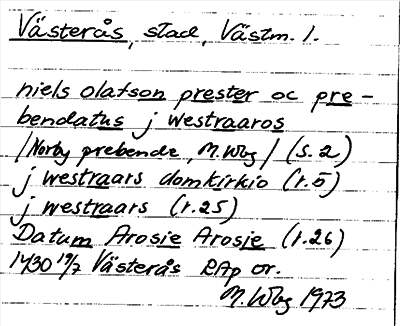 Västerås, stad, Västm. l.
niels olafson prester oc pre-
bendatus j westraaros
/Norby prebende, M.Wbg/ (s.2)
j westraars domkirkio (r.5)
j westraars (r.25)
Datum Arosie Arosie (r.26)
1430 19/7 Västerås RAp or.
M.Wbg 1973